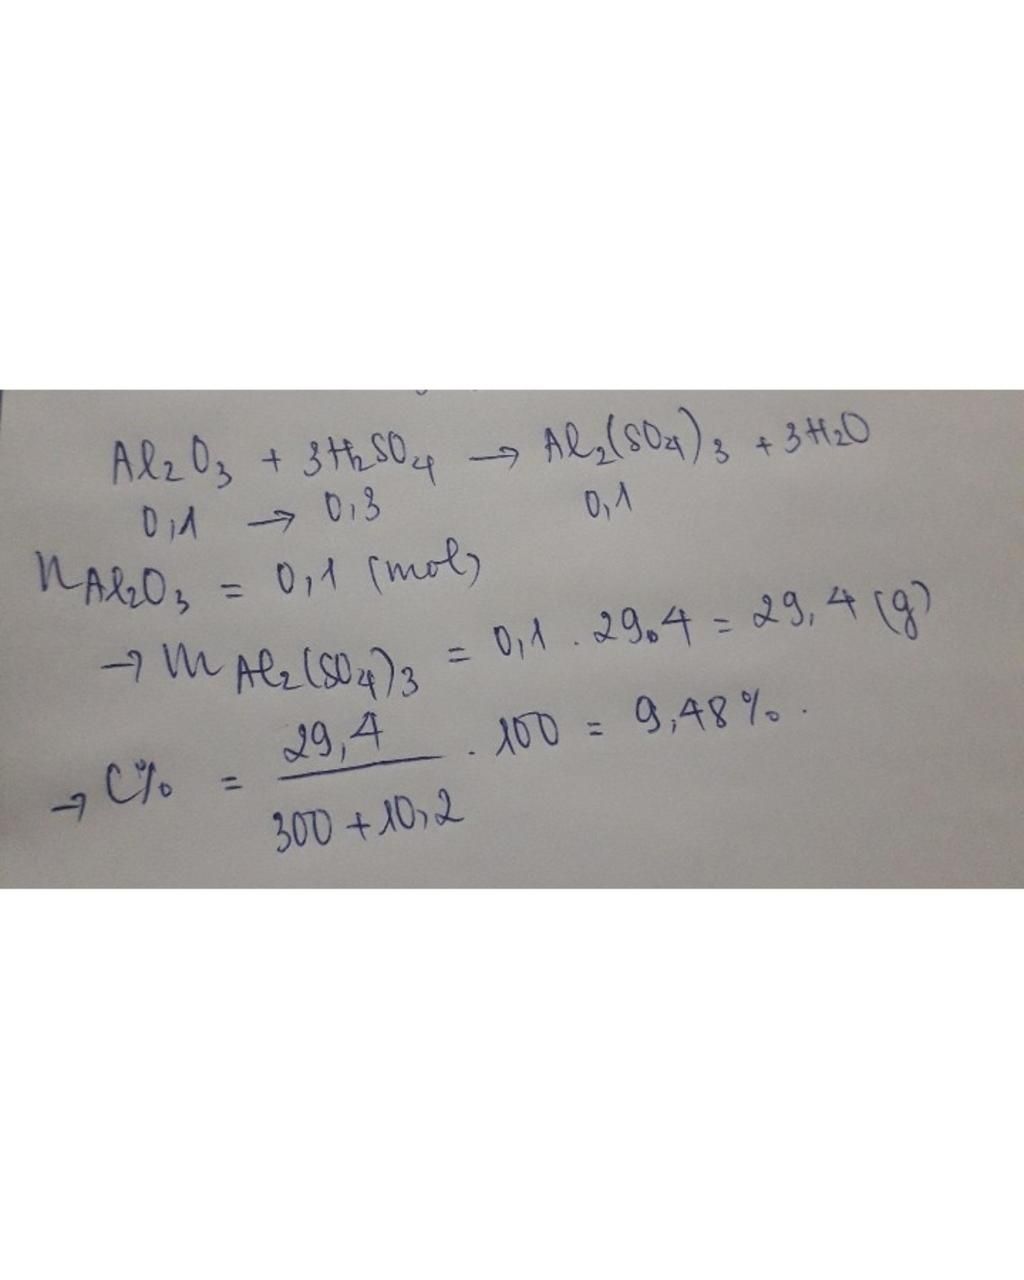 Al₂O₃ + 3H₂SO₄ → Al₂(SO₄)₃ + 3H₂O
0,1 → 0,3 0,1
nAl₂O₃ = 0,1 (mol)
→ mAl₂(SO₄)₃ = 0,1 . 29.4 = 29,4 (g)
→ C% = 29,4 / 300 + 10,2 . 100 = 9,48%.